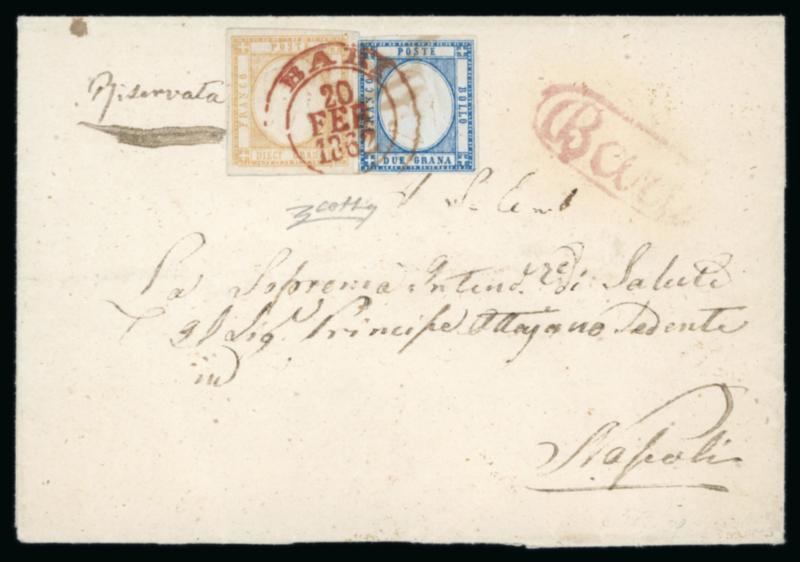 Riservata
POSTE
FRANCO
BOLLO
DIECI GRANA
POSTE
FRANCO
BOLLO
DUE GRANA
BARI
20
FEB
1862
Bari
A S. Ecc.
La Soprema Intend.ze di Salute
Il Sig. Principe Ottajano Sedente
in
Napoli